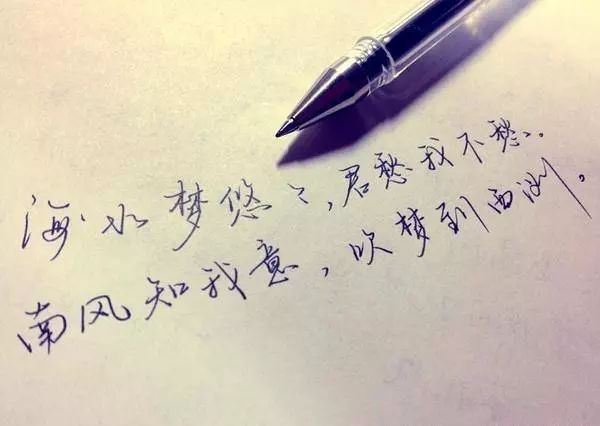 海水梦悠々,君愁我不愁。
南风知我意,吹梦到西洲。